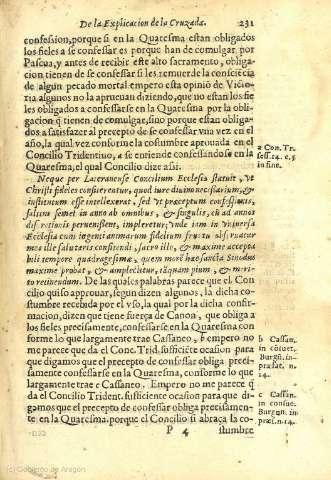 De la Explicacion de la Cruzada. 231
confession, porque si en la Quaresma estan obligados
los fieles a se confessar es porque han de comulgar por
Pascua, y antes de recibir este alto sacramento, obliga
cion tienen de se confessar si les remuerde la consciẽcia
de algun pecado mortal empero esta opinió de Victo-
ria algunos no la aprueuan diziendo, que no estan los fie
les obligados a confessarse en la Quaresma por la obli-
gacion q̃ tienen de comulgar, sino porque estan obliga-
dos a satisfazer al precepto de se confessar vna vez en el
año, la qual vez conforme la costumbre aprouada en el
Concilio Tridentiuo, a se entiende confessandose en la
Quaresma, el qual Concilio dize assi:
Neque per Lateranense Concilium Ecclesia statuit, vt
Christi fideles confiterentur, quod iure diuino necessarium, &
institutum esse intellexerat, sed vt præceptum confessionis,
saltim semel in anno ab omnibus, & singulis, cũ ad annos
discretionis peruenissent, impleretur, vnde iam in vniuersa
Ecclesia cum ingenti animarum fidelium fructu obseruatur
mos ille salutaris confitendi, sacro illo, & maxime accepta
bili tempore quadragesimæ, quem morẽ hæc sancta Sinodus
maxime probat, & amplectitur, tãquam pium, & meri-
to retinendum. De las quales palabras parece que el Con
cilio quiso aprouar, segun dizen algunos, la dicha co-
stumbre recebida por el vso, la qual por la dicha confir-
macion, dizen que tiene fuerça de Canon, que obliga a
los fieles precisamente, confessarse en la Quaresma con
forme lo que largamente trae Cassaneo, b empero no
me parece que da el Conc. Trid. sufficiẽte ocasion para
que digamos que el precepto de confessar obliga preci-
samente confessarse en la Quaresma, conforme lo que
largamente trae c Cassaneo. Empero no me parece q̃
da el Concilio Trident. sufficiente ocasion para que di-
gamos que el precepto de confessar obliga precisamen-
te en la Quaresma, porque el Concilio si abraça la co-
P 4 stumbre
a Con. Tr.
sess. 14. c. 5
in fine.
b Cassan.
in cõsuet.
Burgũ. in
præfat. n.
14.
c Cassan.
in consue.
Burgun. in
præf. n. 14.
(c) Gobierno de Aragón